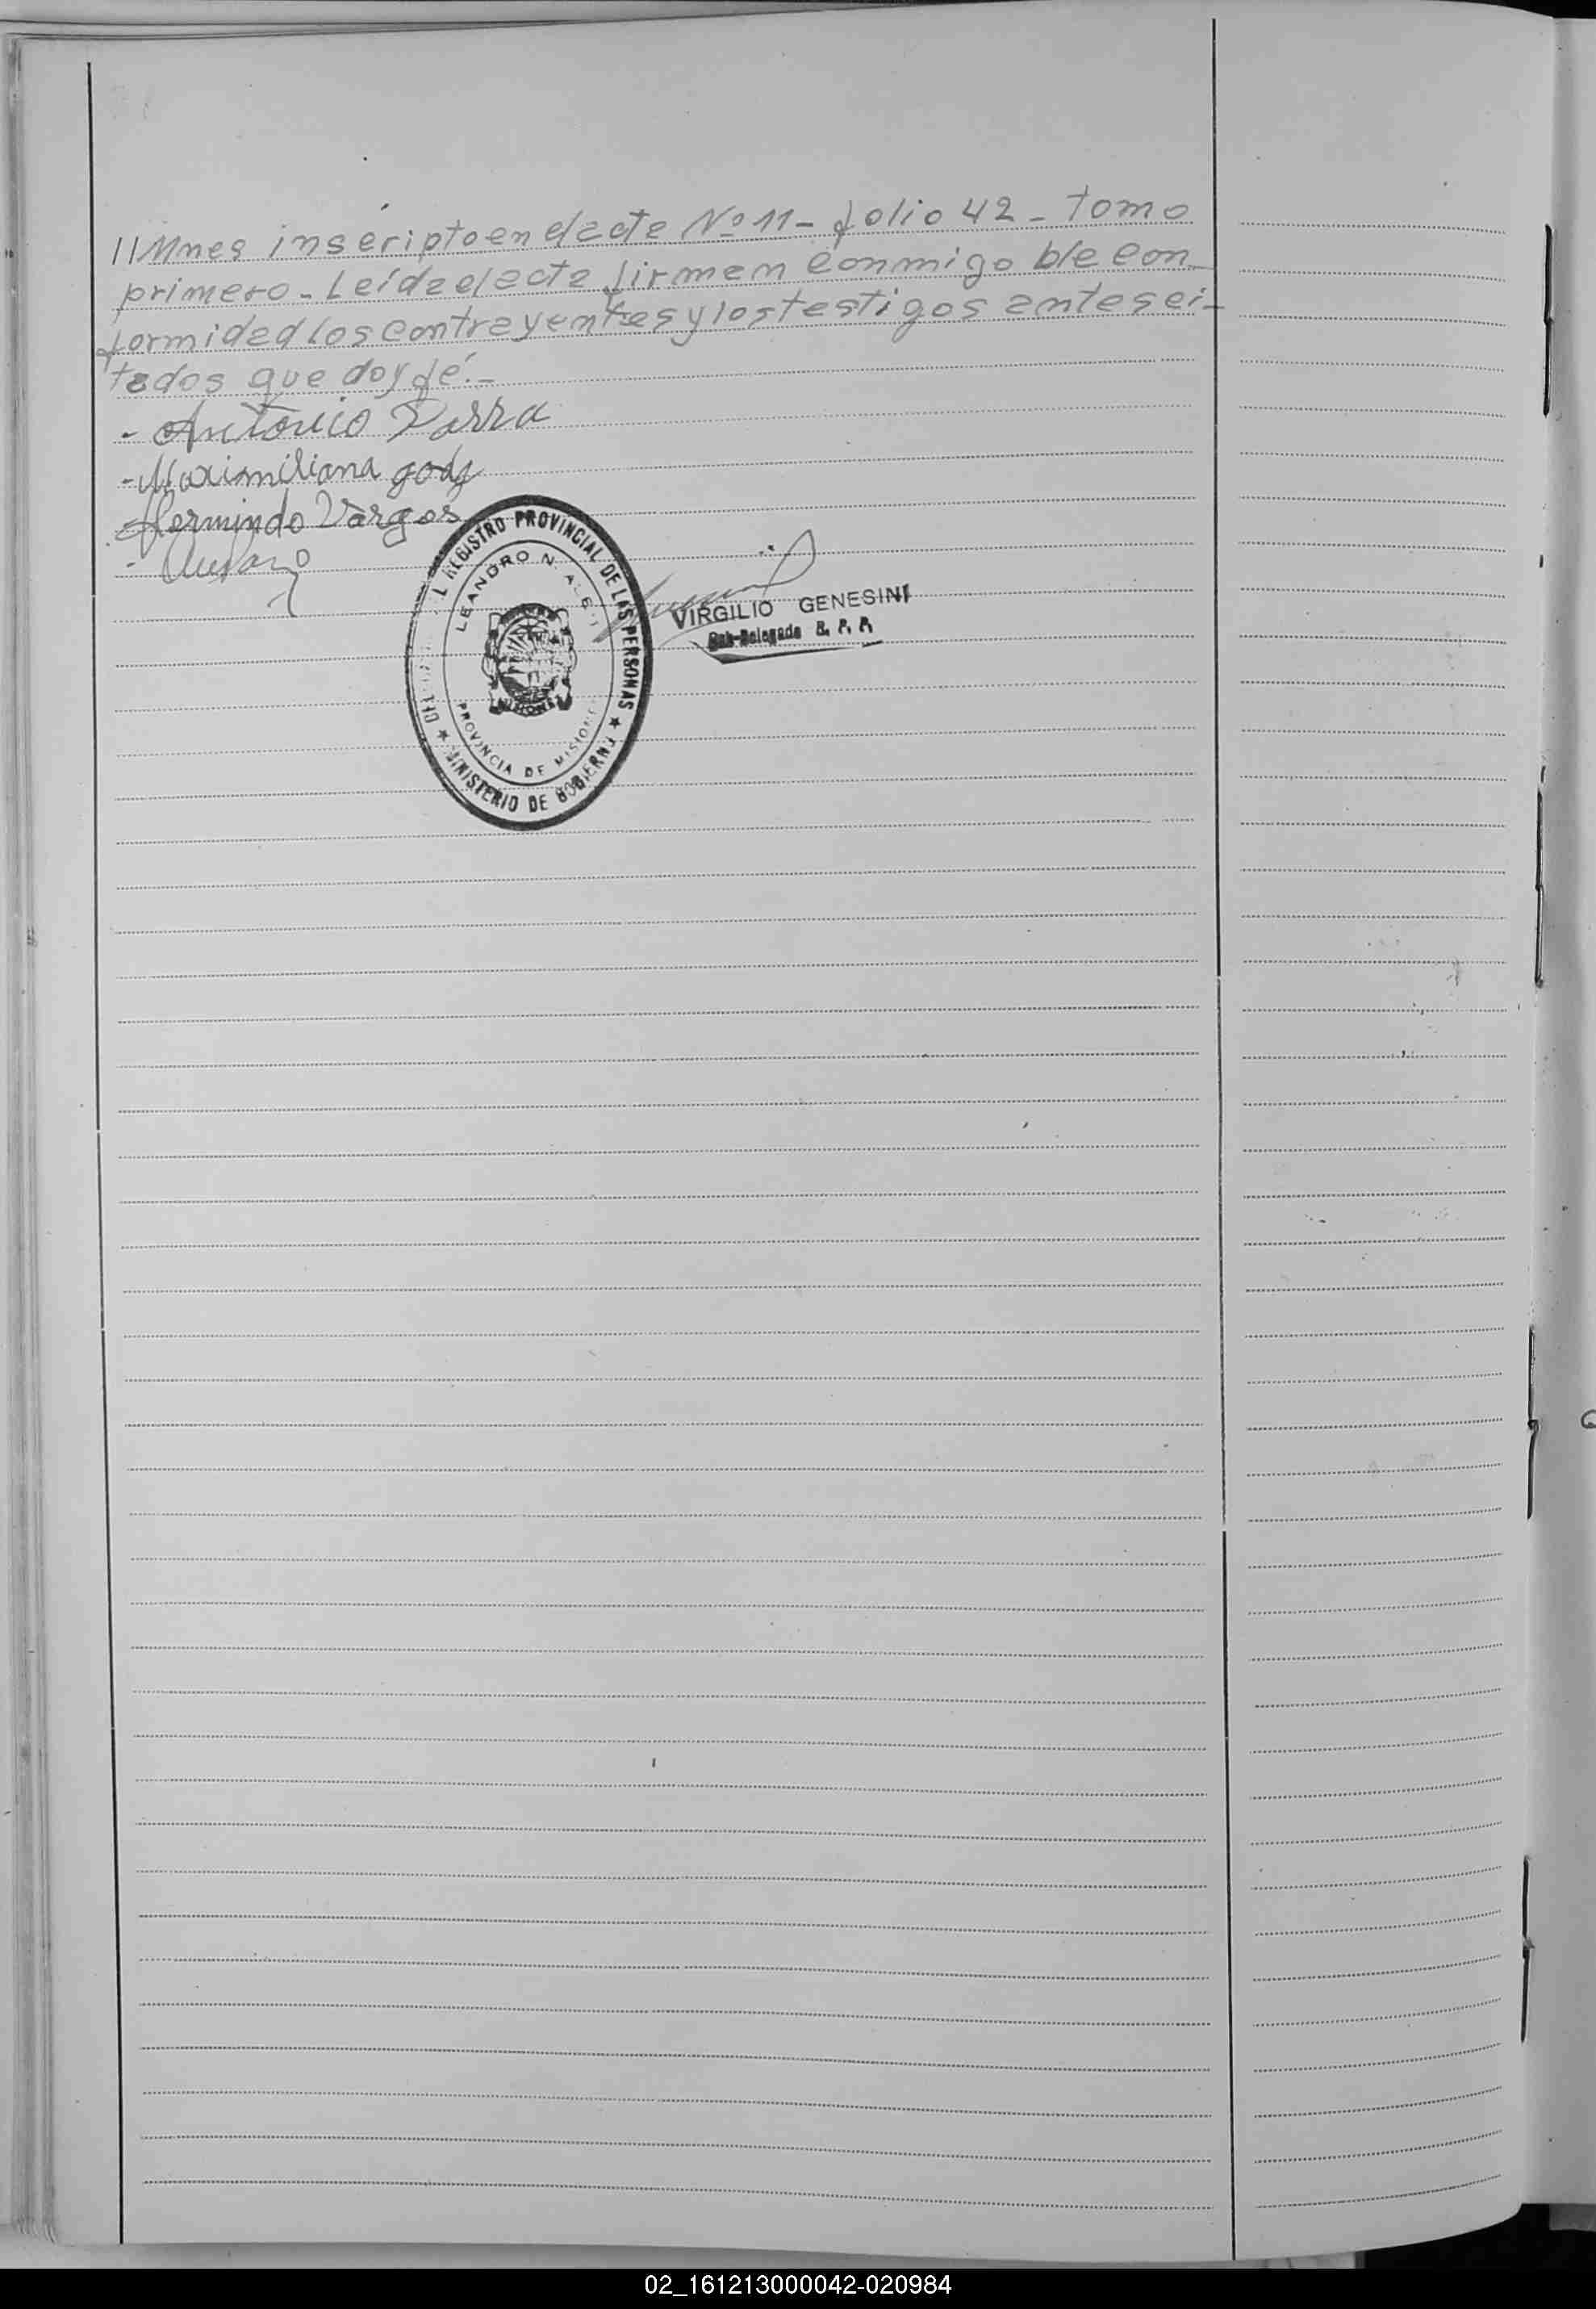 //Mnes inscripto en el acta Nº 11 - folio 42 - tomo
primero - Leída el acta firman conmigo ble con-
formidad los contrayentes y los testigos antes ci-
tados que doy fé. -
- Antonio Parra
- Maximiliana gody
Hermindo Vargas
L REGISTRO PROVINCIAL DE LAS PERSONAS
LEANDRO N. ALEM
MISIONES
PROVINCIA DE MISIONES
★ MINISTERIO DE GOBIERNO ★
VIRGILIO GENESINI
Sub-Delegado R. P. P.
02_161213000042-020984